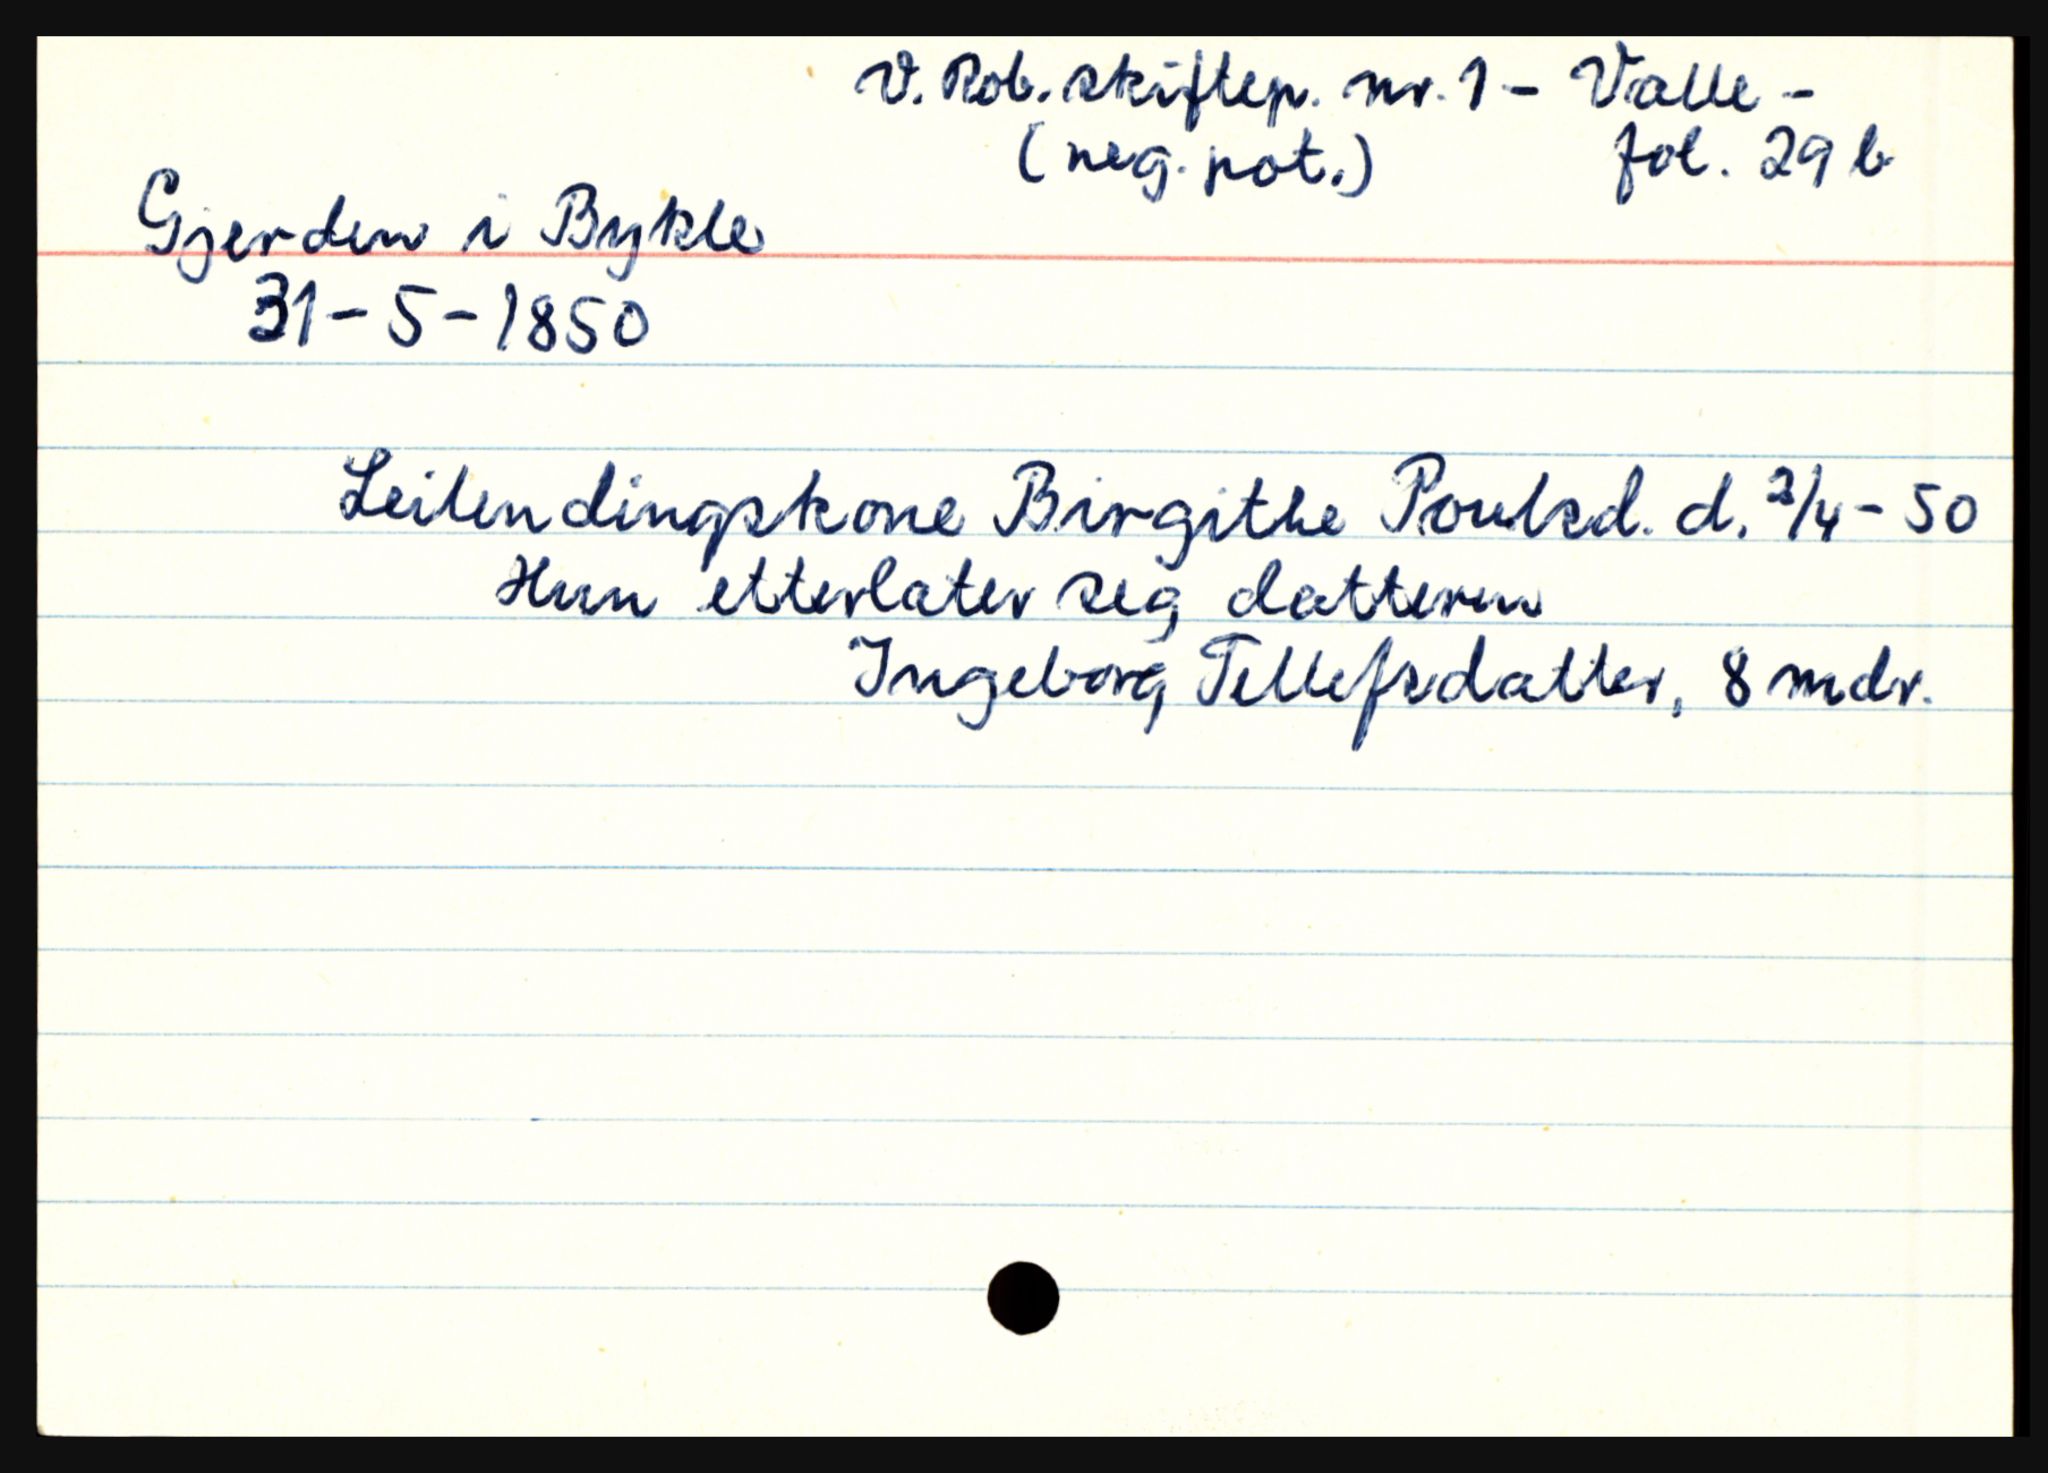 V. Rob. skiftep. nr. 1 - Valle -
(neg. pot.) fol. 29 b
Gjerden i Bykle
31 - 5 - 1850
Leilendingskone Birgithe Poulsd. d. 2/4 - 50
Hun etterlater seg datteren
Ingeborg Tellefsdatter, 8 mdr.